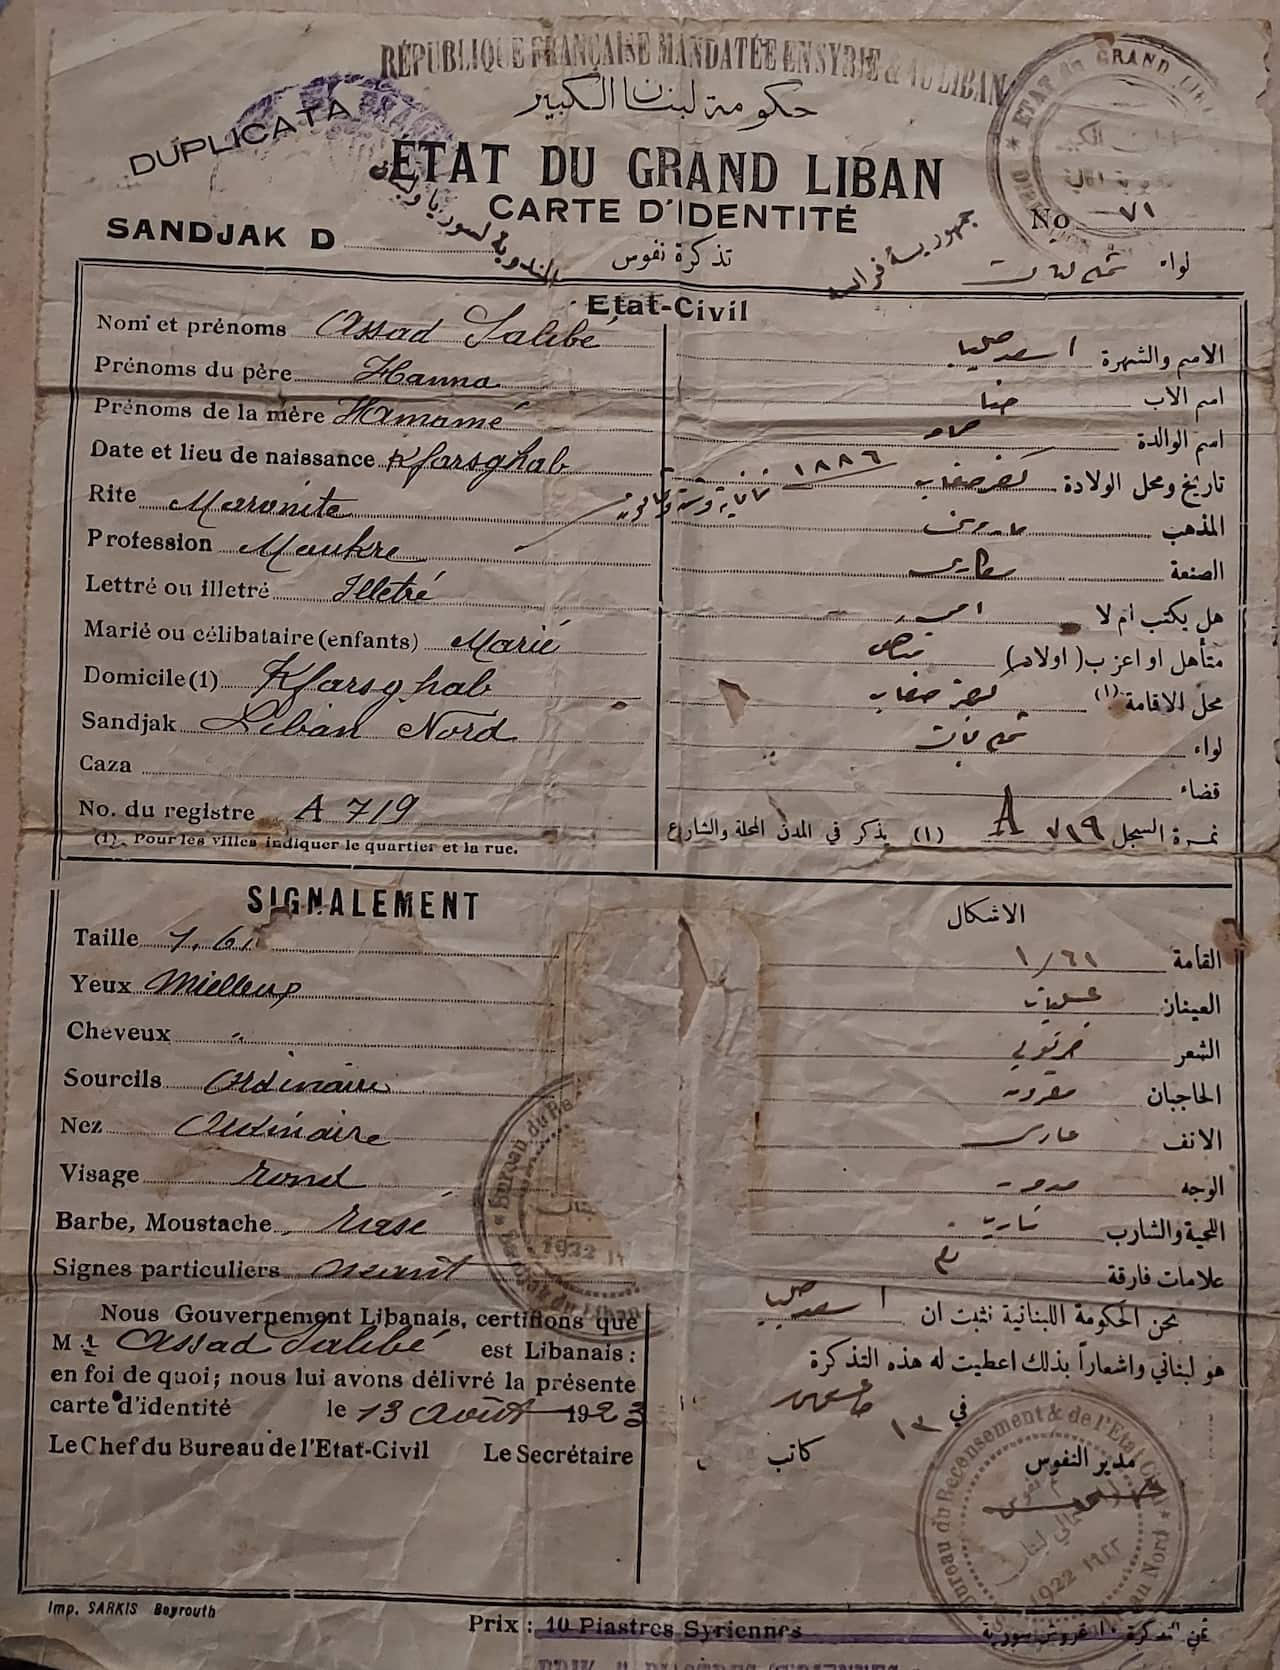 RÉPUBLIQUE FRANÇAISE MANDATÉE EN SYRIE & AU LIBAN
حكومة لبنان الكبير
DUPLICATA
ÉTAT DU GRAND LIBAN
CARTE D'IDENTITÉ
No ٧١
SANDJAK D
تذكرة نفوس
لواء
Etat-Civil
Nom et prénoms Assad Salibé
الاسم والشهرة اسعد صليبا
Prénoms du père Hanna
اسم الاب حنا
Prénoms de la mère Hamamé
اسم الوالدة
Date et lieu de naissance Kfarsghab
تاريخ ومحل الولادة كفرصغاب ١٨٨٦
Rite Maronite
المذهب ماروني
Profession Moukre
الصنعة مكاري
Lettré ou illetré Illetré
هل يكتب ام لا امي
Marié ou célibataire (enfants) Marié
متأهل او اعزب (اولاد)
Domicile (1) Kfarsghab
محل الاقامة (١) كفرصغاب
Sandjak Liban Nord
لواء
Caza
قضاء
No. du registre A 719
نمرة السجل ٧١٩ A
(1). Pour les villes indiquer le quartier et la rue.
(١) يذكر في المدن المحلة والشارع
SIGNALEMENT
الاشكال
Taille 1.61
القامة ١/٦١
Yeux Mielleux
العينان عسليتان
Cheveux "
الشعر
Sourcils Ordinaire
الحاجبان
Nez Ordinaire
الانف عادي
Visage rond
الوجه مدور
Barbe, Moustache rasé
اللحية والشارب
Signes particuliers néant
علامات فارقة
Nous Gouvernement Libanais, certifions que
M r Assad Salibé est Libanais:
en foi de quoi; nous lui avons délivré la présente
carte d'identité le 13 Août 1923
Le Chef du Bureau de l'Etat-Civil Le Secrétaire
نحن الحكومة اللبنانية نثبت ان اسعد صليبا
هو لبناني واشعاراً بذلك اعطيت له هذه التذكرة
في ١٣
مدير النفوس كاتب
Bureau du Recensement & de l'Etat Civil
1922 ١٩٢٢
Imp. SARKIS Beyrouth
Prix: 10 Piastres Syriennes
ثمن التذكرة ١٠ غروش سورية